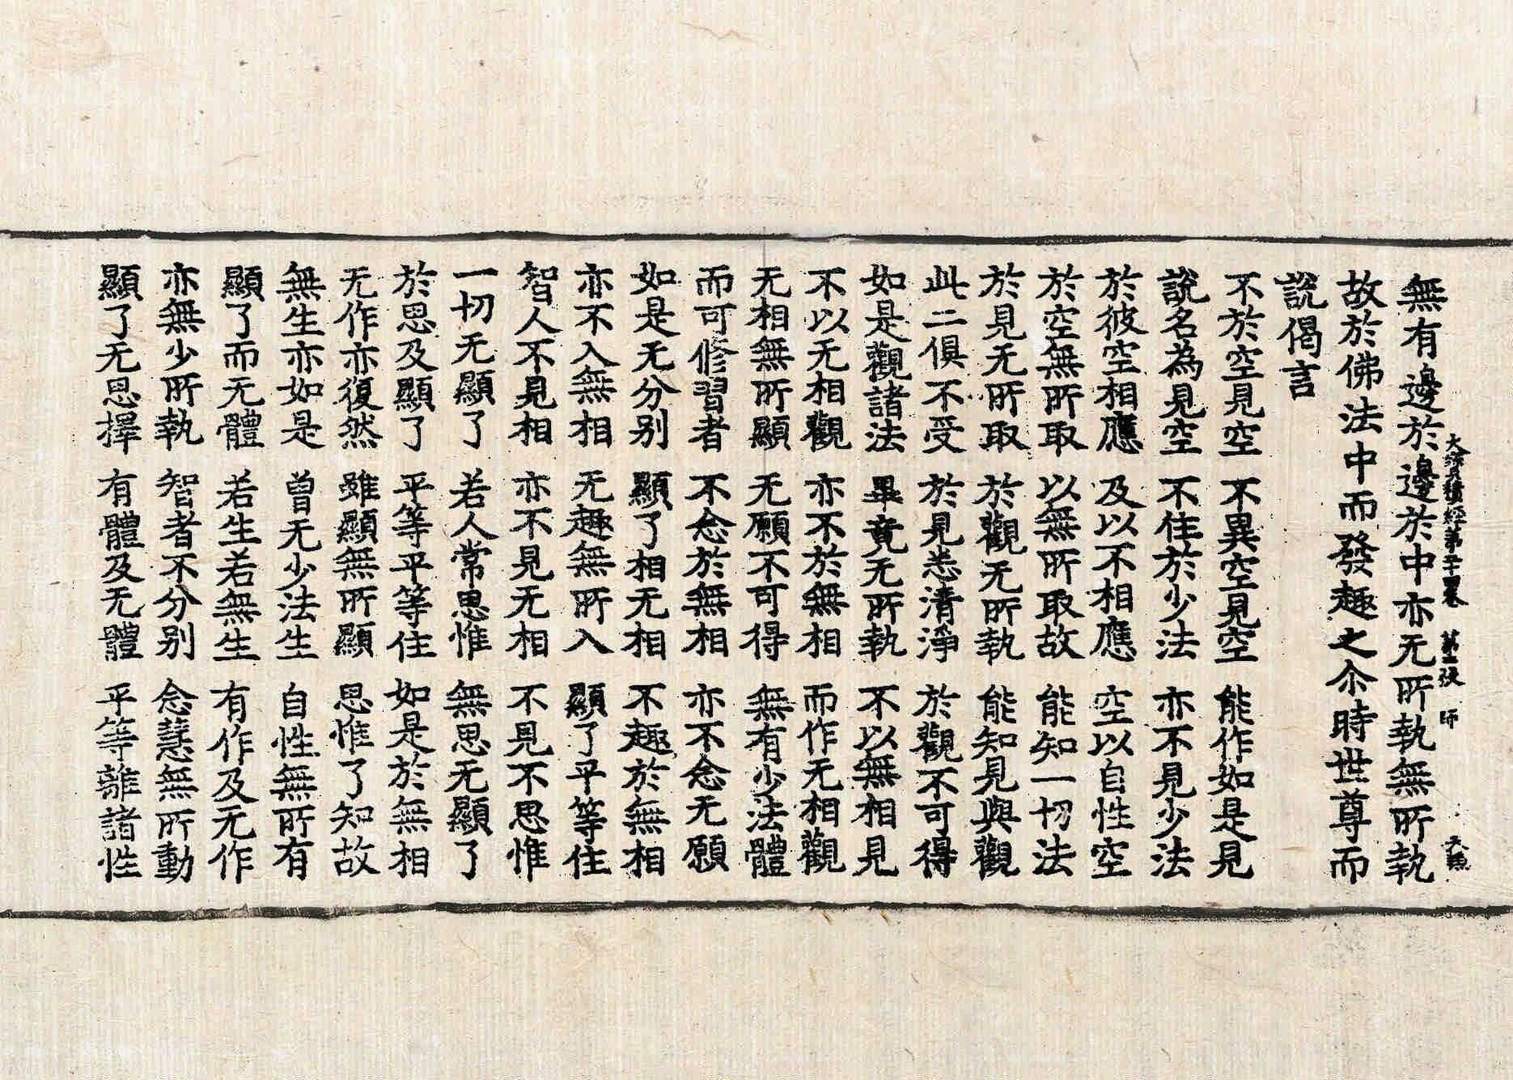 大寶積經第二十四卷 師
無有邊於邊於中亦无所執無所執
故於佛法中而發趣之尒時世尊而
說偈言
不於空見空 不異空見空 能作如是見
說名為見空 不住於少法 亦不見少法
於彼空相應 及以不相應 空以自性空
於空無所取 以無所取故 能知一切法
於見无所取 於觀无所執 能知見與觀
此二俱不受 於見悉清淨 於觀不可得
如是觀諸法 畢竟无所執 不以無相見
不以无相觀 亦不於無相 而作无相觀
无相無所顯 无願不可得 無有少法體
而可修習者 不念於無相 亦不念无願
如是无分别 顯了相无相 不趣於無相
亦不入無相 无趣無所入 顯了平等住
智人不見相 亦不見无相 不見不思惟
一切无顯了 若人常思惟 無思无顯了
於思及顯了 平等平等住 如是於無相
无作亦復然 雖顯無所顯 思惟了知故
無生亦如是 曾无少法生 自性無所有
顯了而无體 若生若無生 有作及无作
亦無少所執 智者不分别 念慧無所動
顯了无思擇 有體及无體 平等離諸性